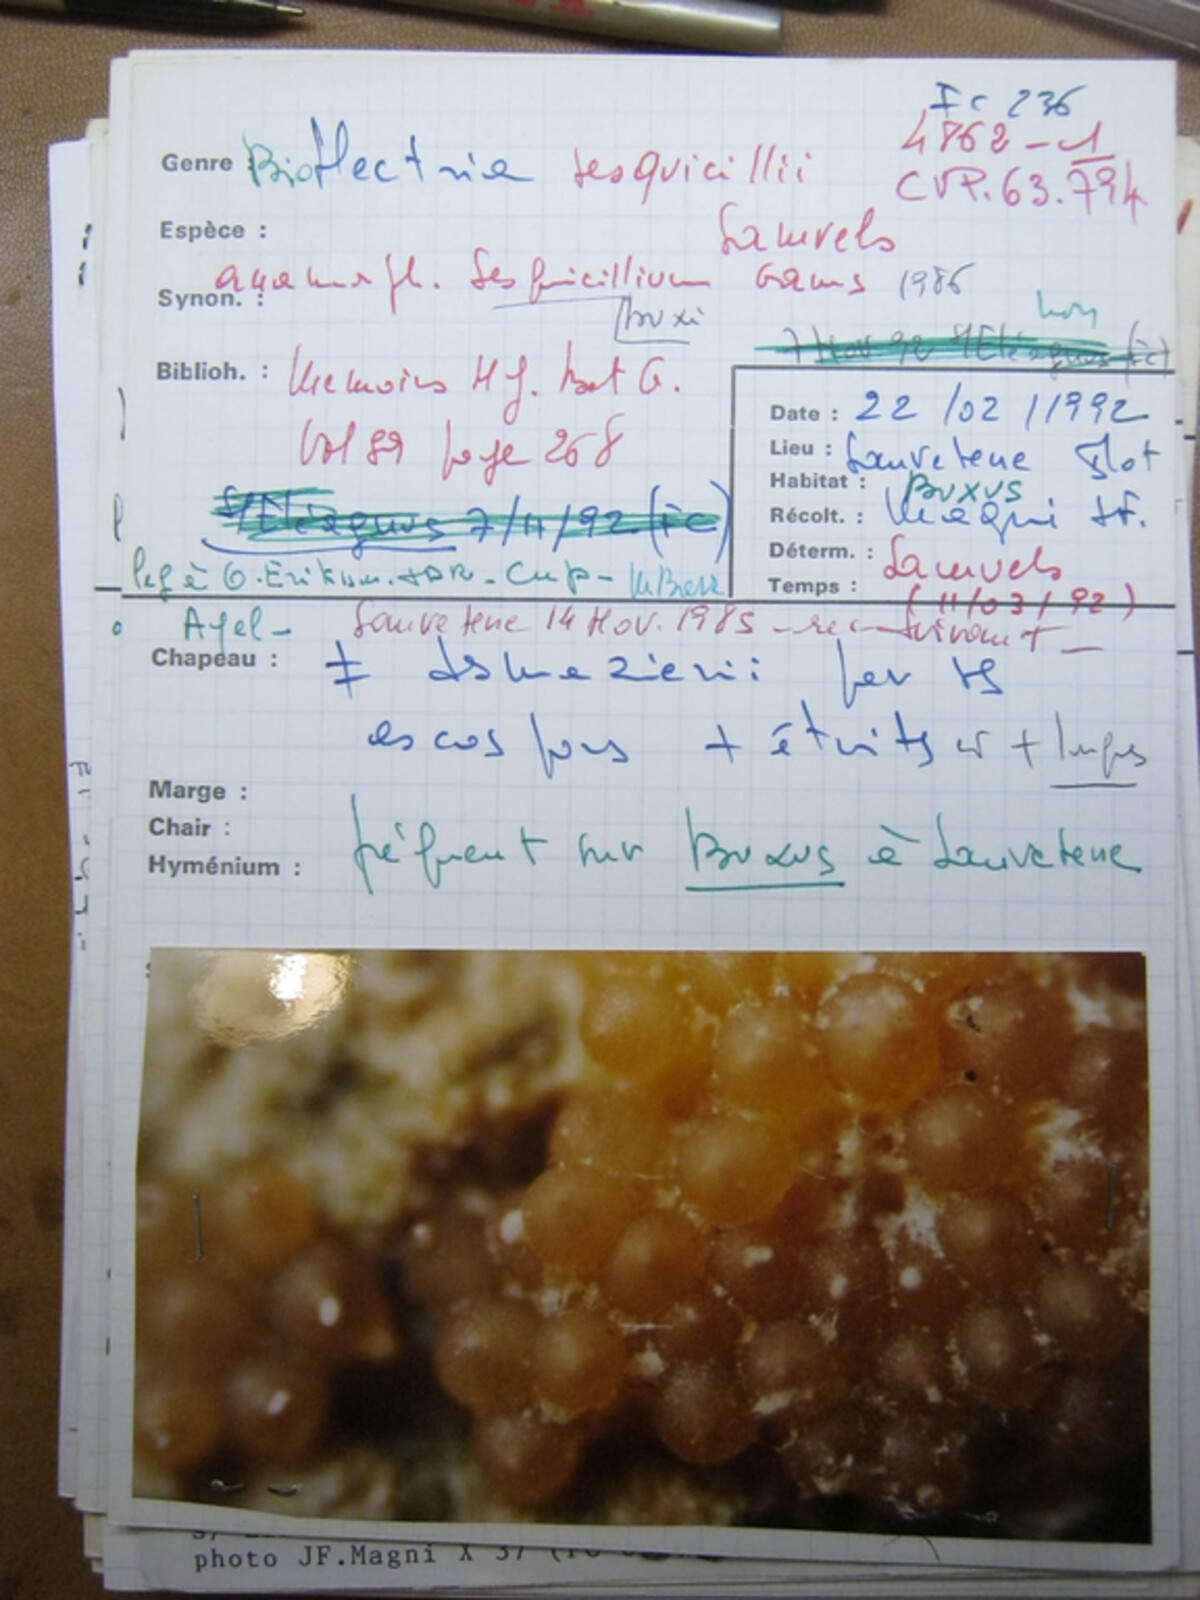 Fc 236
4862-1
CVP.63.794
Genre Bioflectria sesquicillii
Espèce :
Samuels
anamorph. Sesquicillium Gams 1986
Synon. :
buxi
non
Biblioh. : Memoirs N.Y. bot G.
Vol 89 page 268
7/11/92 (FC)
Date : 22 /02 /1992
Lieu : Sauveterre Flot
Habitat : Buxus
Récolt. : Magni JF.
Déterm. : Samuels
Temps : (11/03/92)
leg à CUP -
Sauveterre 14 Nov. 1985
Chapeau : ≠ desmazierii par les
ascospores + étroits et + longues
Marge :
Chair :
Hyménium : fréquent sur Buxus à Sauveterre
photo JF.Magni X 37